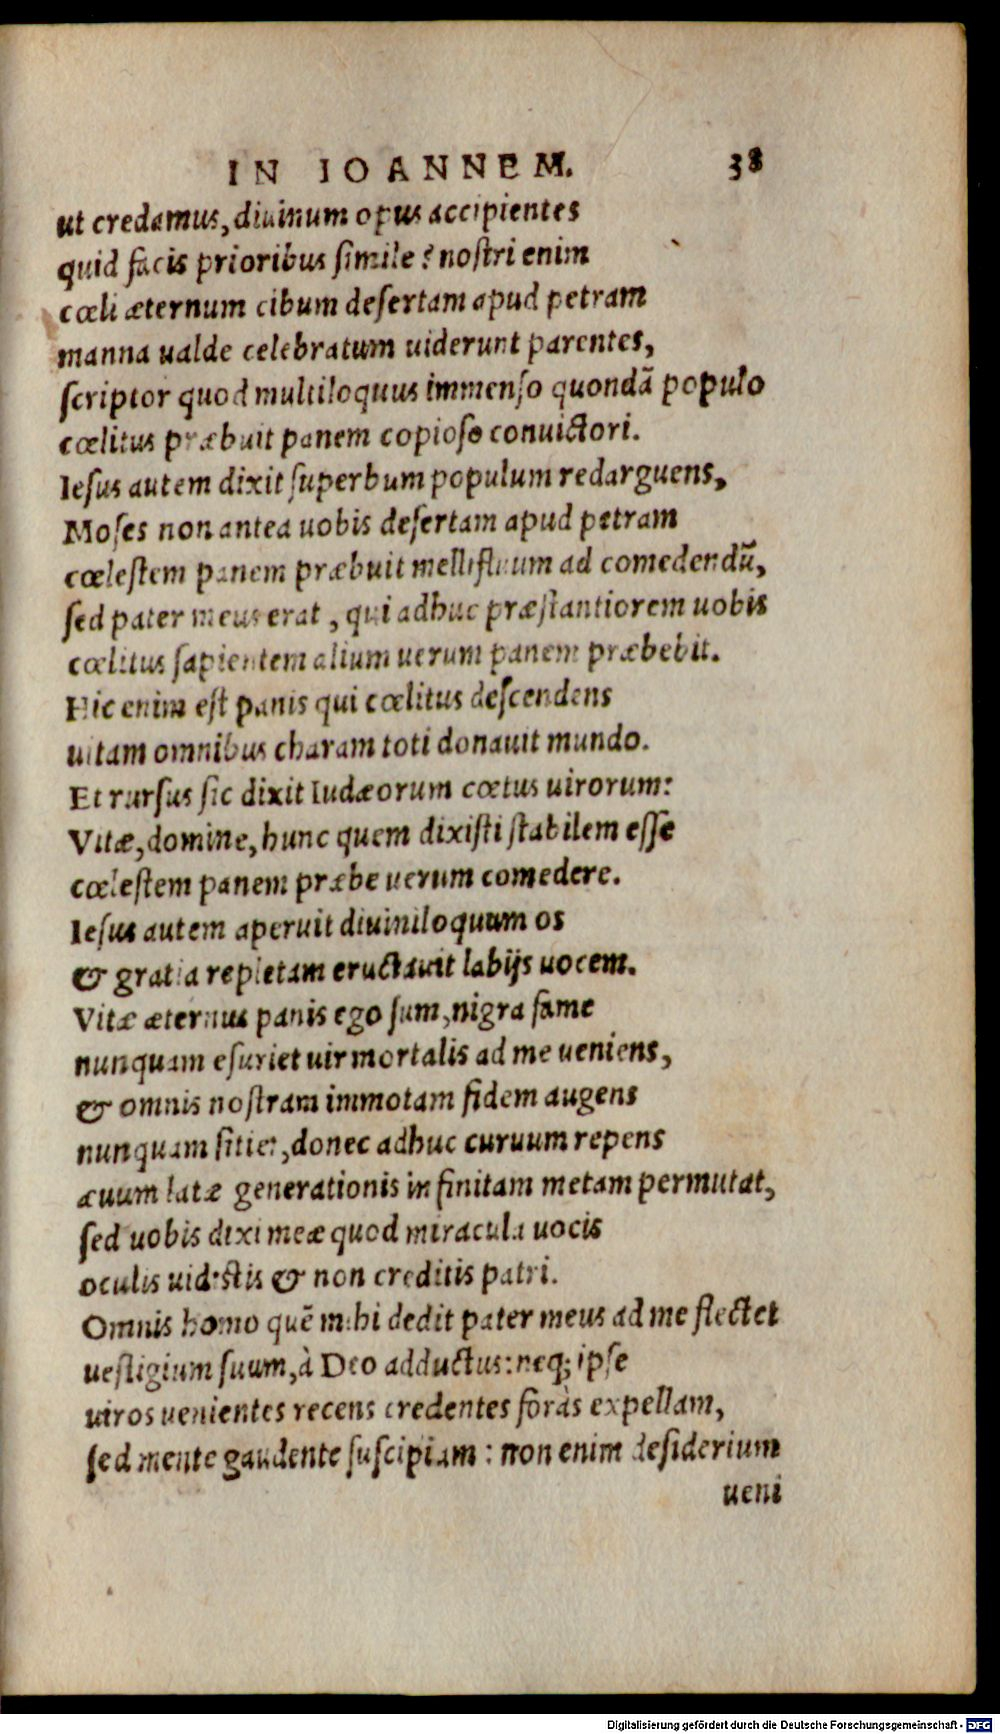 IN IOANNEM. 38
ut credamus, diuinum opus accipientes
quid facis prioribus simile? nostri enim
cœli æternum cibum desertam apud petram
manna ualde celebratum uiderunt parentes,
scriptor quod multiloquus immenso quondã populo
cœlitus præbuit panem copioso conuictori.
Iesus autem dixit superbum populum redarguens,
Moses non antea uobis desertam apud petram
cœlestem panem præbuit mellifluum ad comedendũ,
sed pater meus erat, qui adhuc præstantiorem uobis
cœlitus sapientem alium uerum panem præbebit.
Hic enim est panis qui cœlitus descendens
uitam omnibus charam toti donauit mundo.
Et rursus sic dixit Iudæorum cœtus uirorum:
Vitæ, domine, hunc quem dixisti stabilem esse
cœlestem panem præbe uerum comedere.
Iesus autem aperuit diuiniloquum os
& gratia repletam eructauit labijs uocem.
Vitæ æternus panis ego sum, nigra fame
nunquam esuriet uir mortalis ad me ueniens,
& omnis nostram immotam fidem augens
nunquam sitiet, donec adhuc curuum repens
æuum latæ generationis in finitam metam permutat,
sed uobis dixi meæ quod miracula uocis
oculis uidistis & non creditis patri.
Omnis homo quẽ mihi dedit pater meus ad me flectet
uestigium suum, à Deo adductus: neq; ipse
uiros uenientes recens credentes foràs expellam,
sed mente gaudente suscipiam: non enim desiderium
ueni
Digitalisierung gefördert durch die Deutsche Forschungsgemeinschaft - DFG